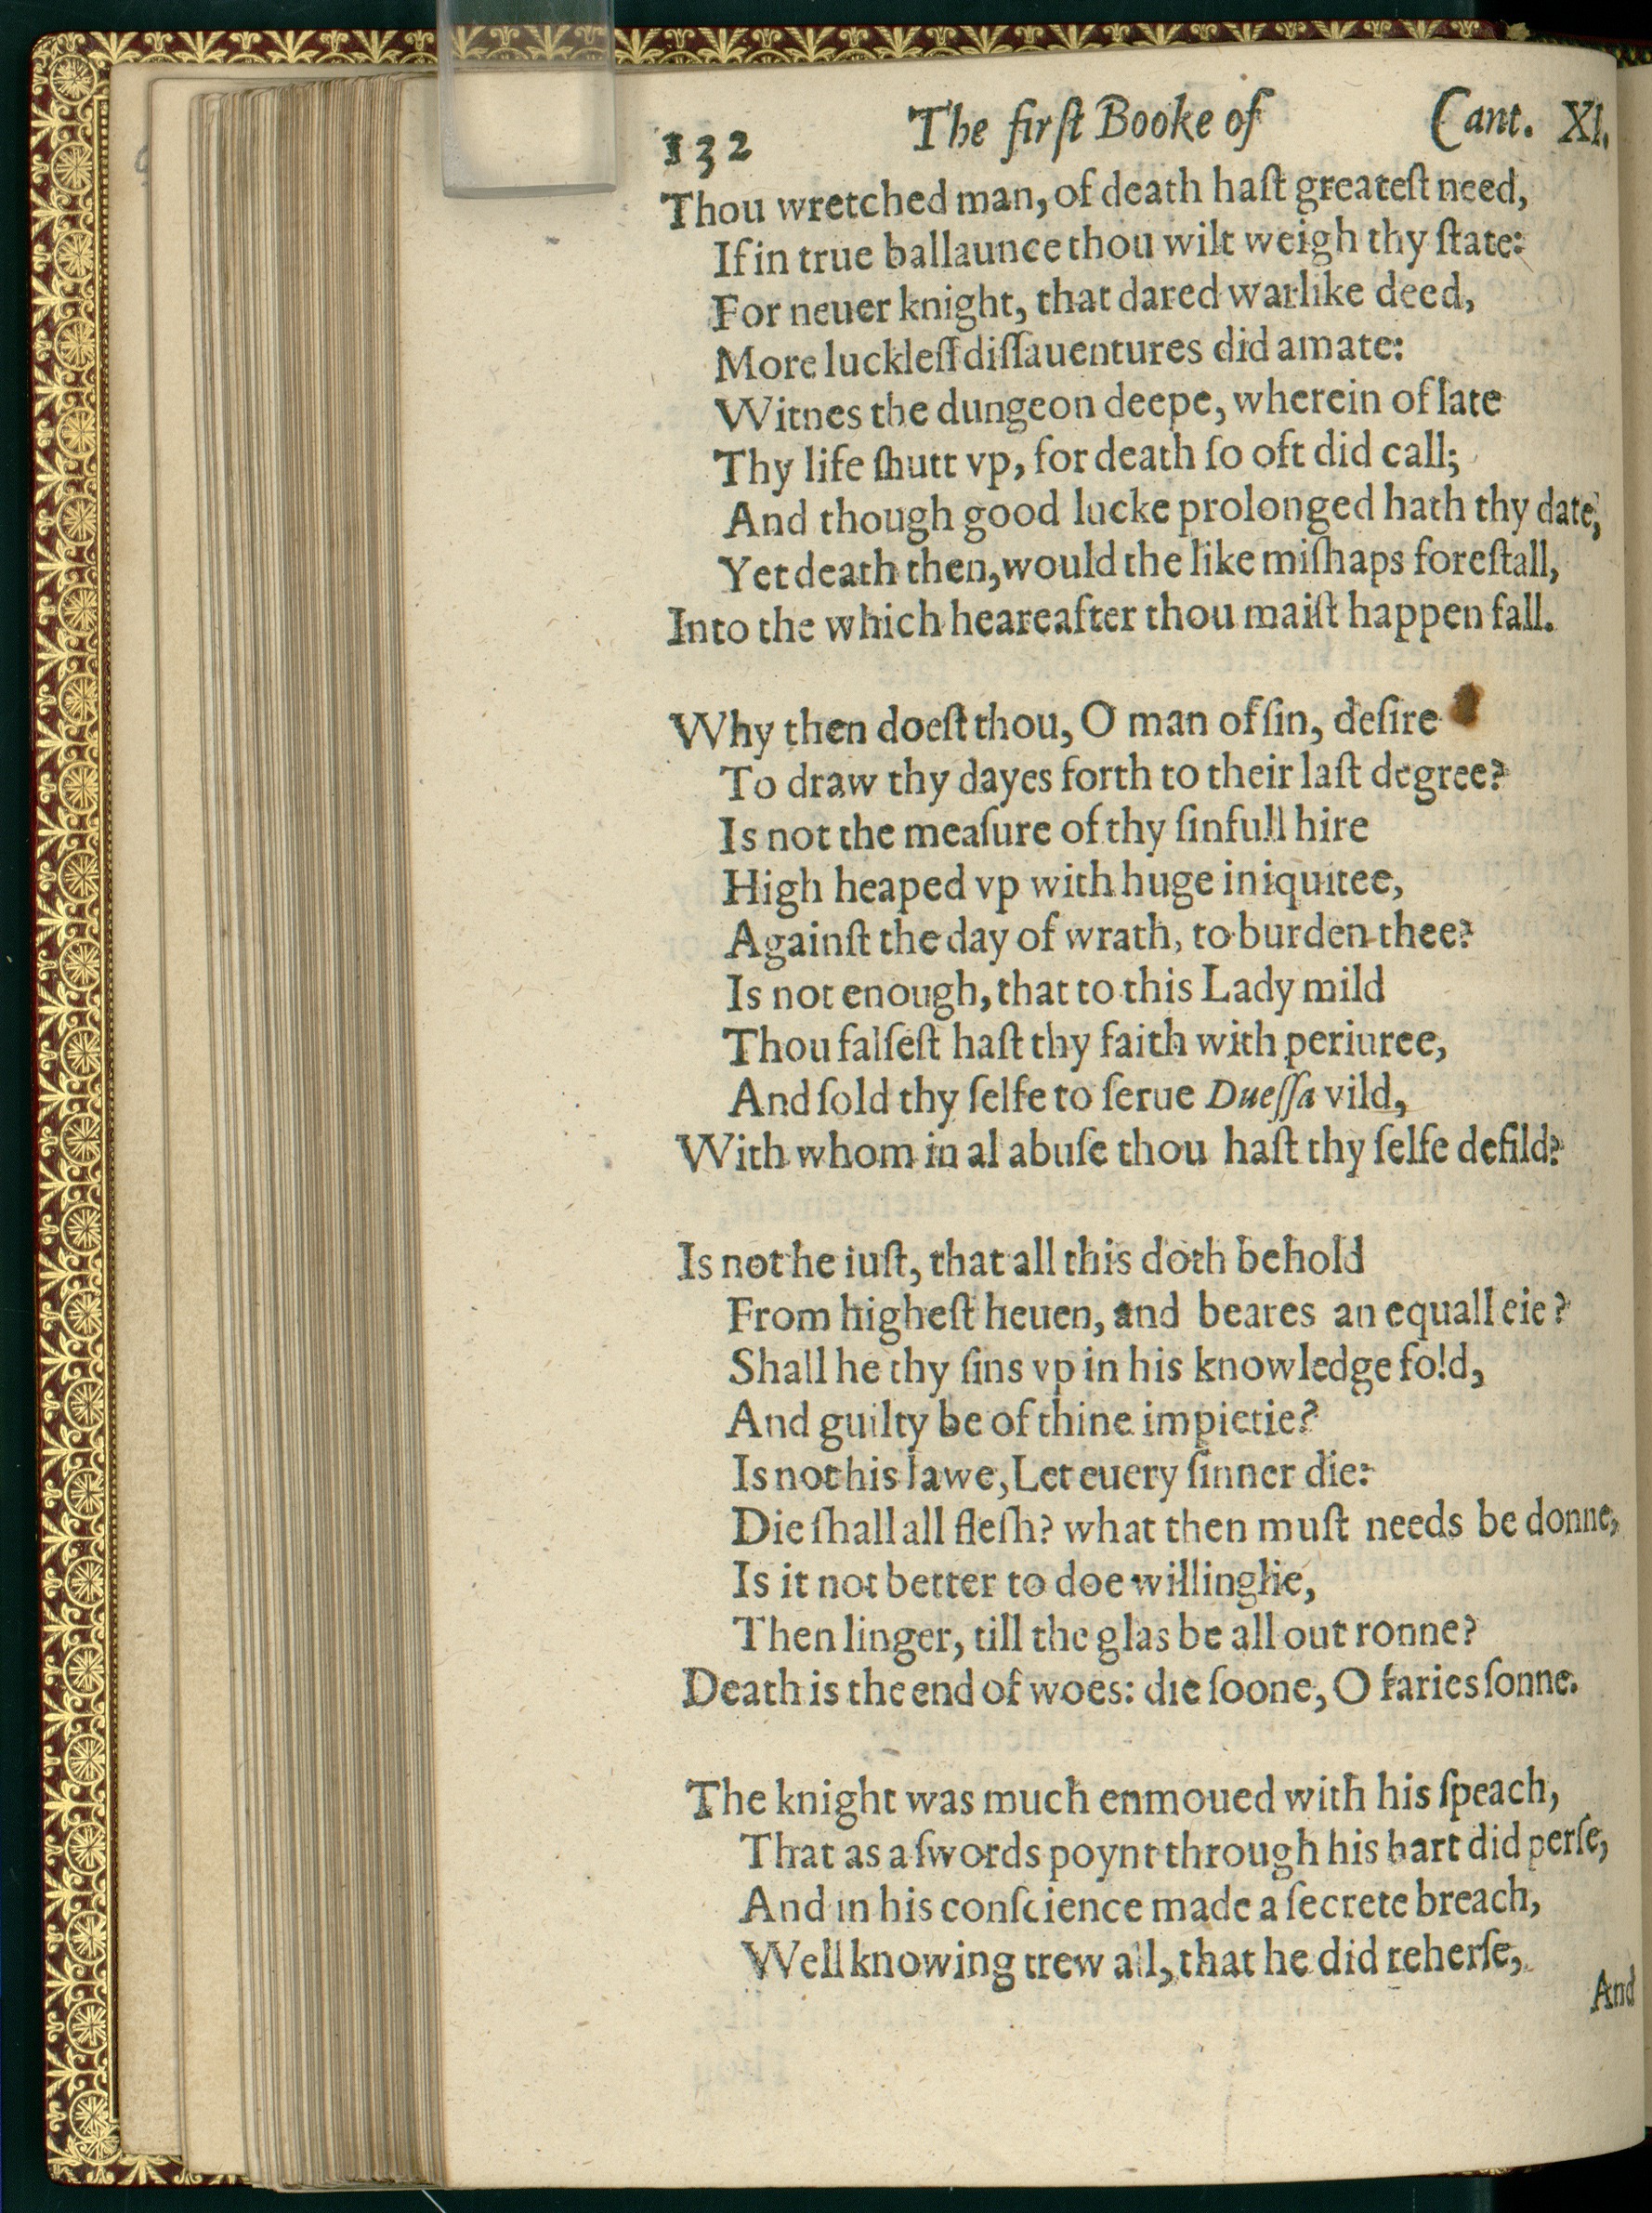 132 The firſt Booke of Cant. XI.
Thou wretched man, of death haſt greateſt need,
If in true ballaunce thou wilt weigh thy ſtate:
For neuer knight, that dared warlike deed,
More luckleſſ diſſauentures did amate:
Witnes the dungeon deepe, wherein of late
Thy life ſhutt vp, for death ſo oft did call;
And though good lucke prolonged hath thy date,
Yet death then, would the like miſhaps foreſtall,
Into the which heareafter thou maiſt happen fall.
Why then doeſt thou, O man of ſin, deſire
To draw thy dayes forth to their laſt degree?
Is not the meaſure of thy ſinfull hire
High heaped vp with huge iniquitee,
Againſt the day of wrath, to burden thee?
Is not enough, that to this Lady mild
Thou falſeſt haſt thy faith with periuree,
And ſold thy ſelfe to ſerue Dueſſa vild,
With whom in al abuſe thou haſt thy ſelfe defild?
Is not he iuſt, that all this doth behold
From higheſt heuen, and beares an equall eie?
Shall he thy ſins vp in his knowledge fold,
And guilty be of thine impietie?
Is not his lawe, Let euery ſinner die:
Die ſhall all fleſh? what then muſt needs be donne,
Is it not better to doe willinglie,
Then linger, till the glas be all out ronne?
Death is the end of woes: die ſoone, O faries ſonne.
The knight was much enmoued with his ſpeach,
That as a ſwords poynt through his hart did perſe,
And in his conſcience made a ſecrete breach,
Well knowing trew all, that he did reherſe,
And